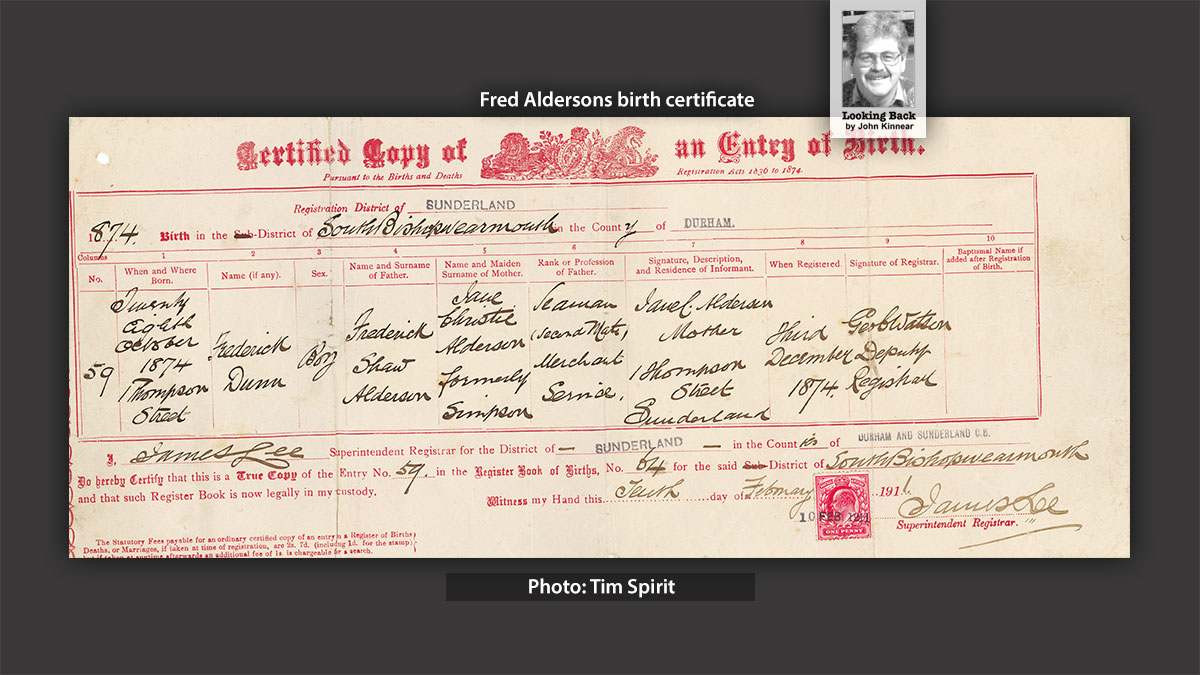 Looking Back
by John Kinnear
Fred Aldersons birth certificate
Certified Copy of an Entry of Birth.
Pursuant to the Births and Deaths Registration Acts 1836 to 1874.
Registration District of SUNDERLAND
1874. Birth in the Sub-District of South Bishopwearmouth in the County of DURHAM.
Columns 1 2 3 4 5 6 7 8 9 10
No. When and Where Born. Name (if any). Sex. Name and Surname of Father. Name and Maiden Surname of Mother. Rank or Profession of Father. Signature, Description, and Residence of Informant. When Registered. Signature of Registrar. Baptismal Name if added after Registration of Birth.
59 Twenty Eighth October 1874 1 Thompson Street Frederick Dunn Boy Frederick Shaw Alderson Jane Christie Alderson formerly Simpson Seaman (Second Mate) Merchant Service. Jane C. Alderson Mother 1 Thompson Street Sunderland Third December 1874. Geo C Watson Deputy Registrar
I, James Lee Superintendent Registrar for the District of SUNDERLAND in the Counties of DURHAM AND SUNDERLAND C.B.
Do hereby Certify that this is a True Copy of the Entry No. 59. in the Register Book of Births, No. 64 for the said Sub-District of South Bishopwearmouth
and that such Register Book is now legally in my custody.
Witness my Hand this Tenth day of February 1911.
James Lee
10 FEB 1911
ONE PENNY
Superintendent Registrar.
The Statutory Fees payable for an ordinary certified copy of an entry in a Register of Births
Deaths, or Marriages, if taken at time of registration, are 2s. 7d. (including 1d. for the stamp)
but if taken at anytime afterwards an additional fee of 1s. is chargeable for a search.
Photo: Tim Spirit